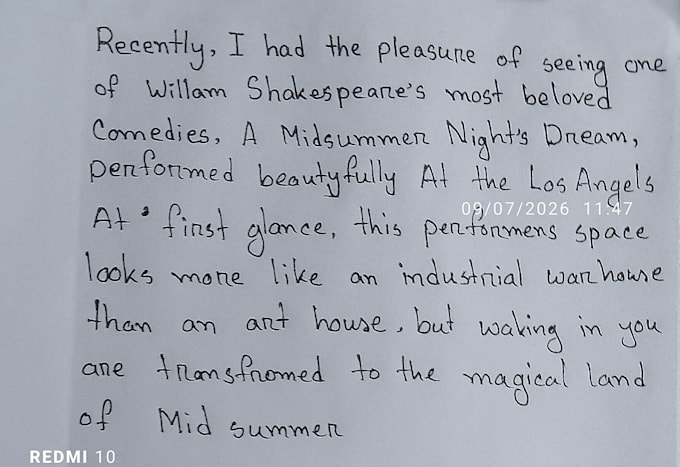 Recently, I had the pleasure of seeing one
of Willam Shakespeare's most beloved
Comedies, A Midsummer Night's Dream,
performed beautyfully At the Los Angels
09/07/2026 11:47
At first glance, this performens space
looks more like an industrial warhouse
than an art house, but waking in you
are transfromed to the magical land
of Mid summer
REDMI 10